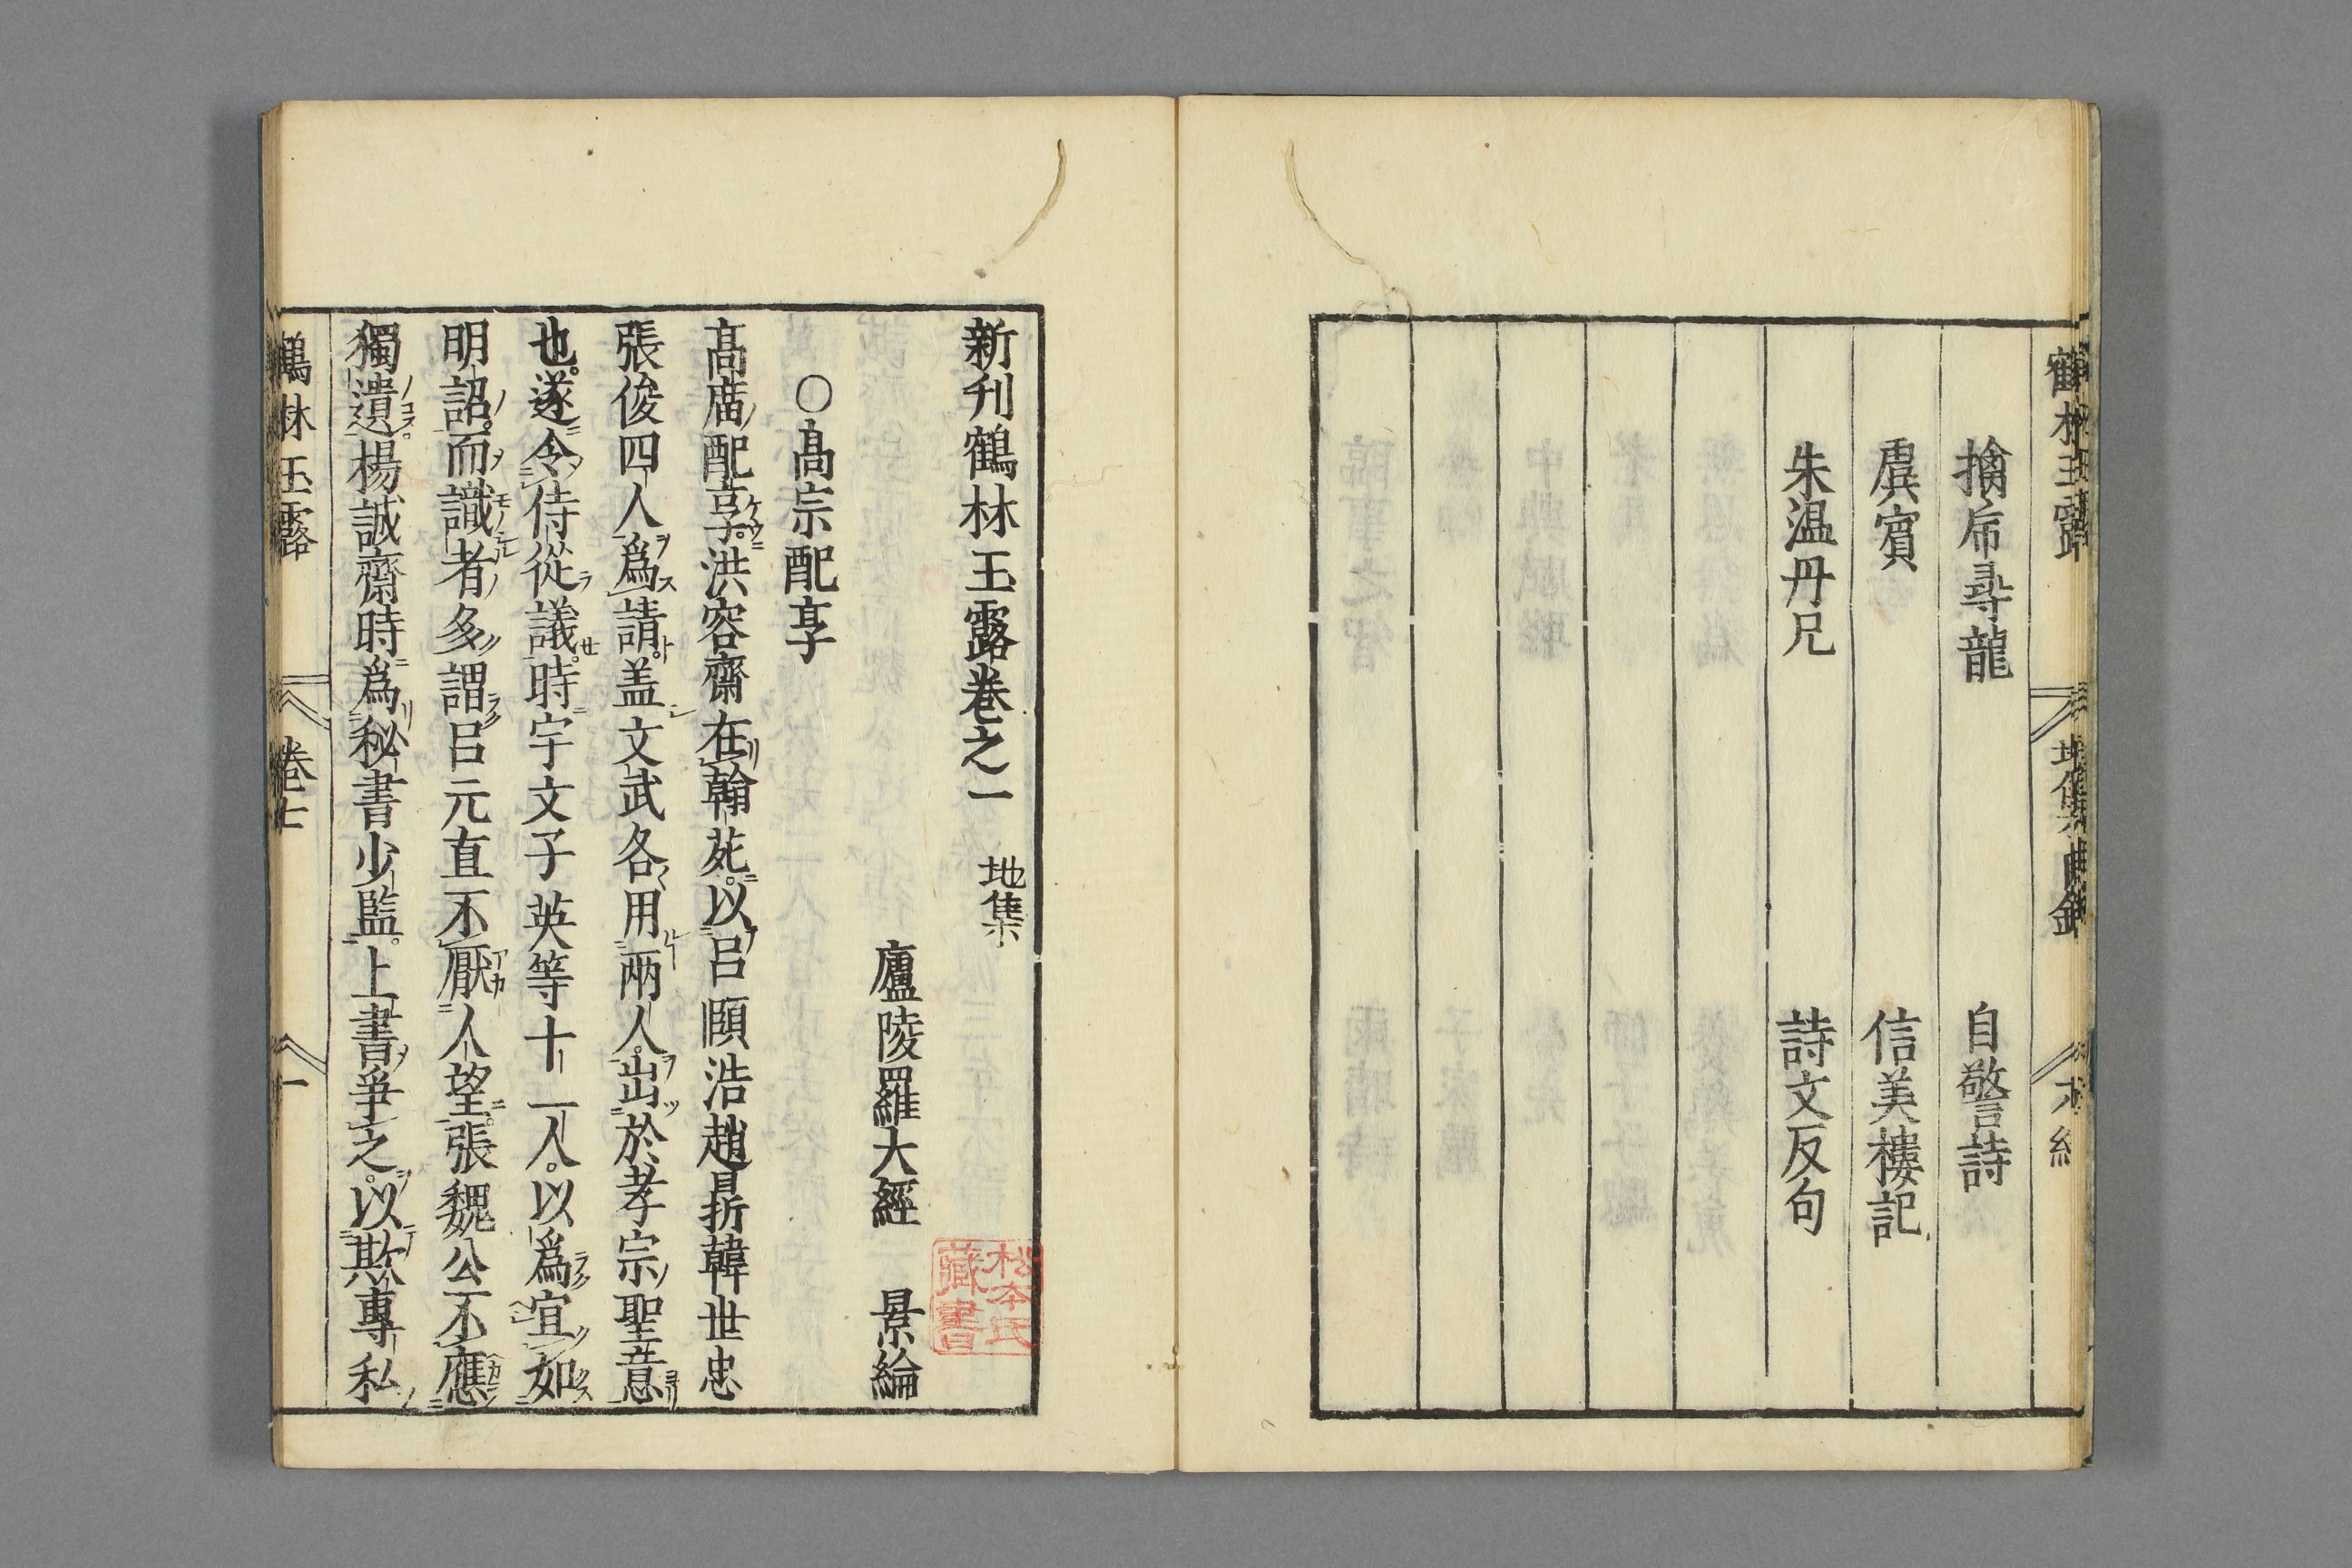 鶴林玉露
地集目錄
擒虎尋龍　自警詩
虞賓　信美樓記
朱温丹兄　詩文反句
新刊鶴林玉露卷之一　地集
廬陵羅大經　景綸
○髙宗配享
髙庿配享洪容齋在翰苑以呂頤浩趙鼎韓世忠
張俊四人爲請盖文武各用兩人出於孝宗聖意
也遂令侍從議時宇文子英等十一人以爲宜如
明詔而識者多謂呂元直不厭人望張魏公不應
獨遺楊誠齋時爲秘書少監上書爭之以欺專私
鶴林玉露
卷七
一
松本氏藏書